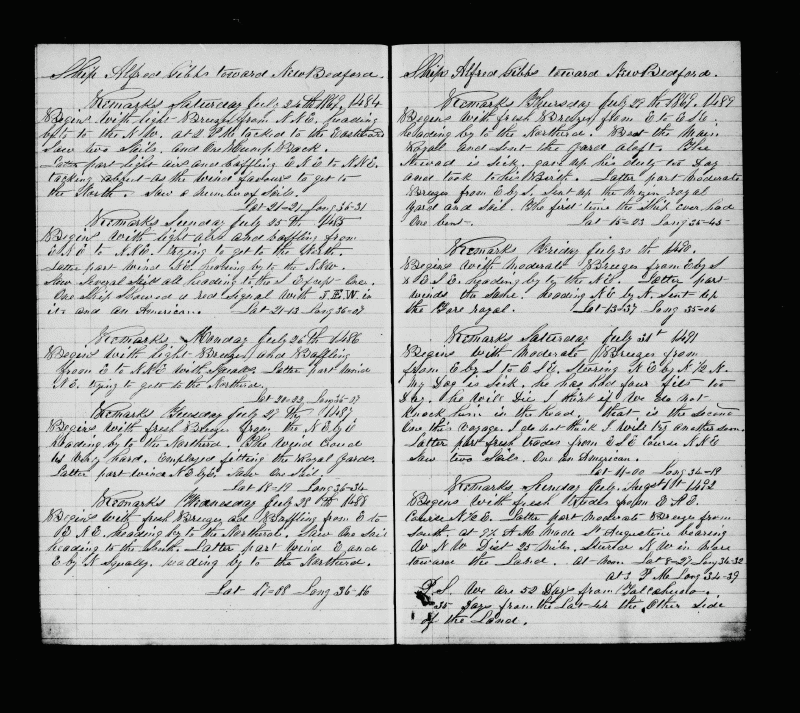 Ship Alfred Gibbs toward New Bedford.
Remarks Saturday July 24th 1869. 1484
Begins with light Breezes from N.N.E. heading
by to the N.W. at 2 P.M. tacked to the Eastward
Saw two Sails. and One Hump Back.
Latter part light airs and baffling E.N.E to N.N.E.
tacking about as the wind favours to get to
the North. Saw a number of Sails.
Lat 21-21 Long 36-31
Remarks Sunday July 25th 1485
Begins with light airs and baffling from
E.N.E to N.N.E. trying to get to the North.
Latter part wind heading by to the N.N.W.
Saw Several Ships all heading to the S. Except One.
One Ship Showed a red Signal with J.E.W. in
it and an American. Lat 21-13 Long 36-07
Remarks Monday July 26th 1486
Begins with light Breezes and Baffling
from E to N.N.E with Squalls. Latter part wind
N.E. trying to gett to the Northerd.
Lat 20-22 Long 36-27
Remarks Tuesday July 27th 1487
Begins with fresh Breezes from the N.E. by E
heading by to the Northerd. The Wyind Could
is Very hard. Employed fitting the Royal Yards.
Latter part wind N.E by E. Saw One Sail.
Lat 19-17 Long 36-34
Remarks Wednesday July 28th 1488
Begins with fresh Breezes and Baffling from E to
E.N.E. heading by to the Northerd. Saw One Sail
heading to the South. Latter part wind E. and
E by N Squally. heading by to the Northerd.
Lat 17-08 Long 36-16
Ship Alfred Gibbs toward New Bedford.
Remarks Thursday July 29th 1869. 1489
Begins with fresh Breezes from E to E.S.E.
heading by to the Northerd. Bent the Main
Royall and Sent the yard aloft. The
Steward is Sick. gave up his duty too Day
and took to his Berth. Latter part moderate
Breezes from E by S. Sent up the Mizen royal
yard and Sail. The first time the Ship ever had
One bent. Lat 15-23 Long 35-45
Remarks Friday July 30th 1490.
Begins with moderate Breezes from E by S
& E.S.E. heading by to the N.E. Latter part
winds the Same. heading N.E by N. Sent up
the Fore royal. Lat 13-37 Long 35-06
Remarks Saturday July 31st 1491
Begins with moderate Breezes from
from E by S to E.S.E. Stering N.E by N ½ N.
my Dog is Sick. he has had four fits too
Day. he will Die I think if We do not
Knock him in the head. that is the Second
One this Voyage. I do not think I will try another soon.
Latter part fresh trades from E.S.E. Course N.N.E
Saw two Sails. One an American.
Lat 11-00 Long 34-19
Remarks Sunday August 1st 1492
Begins with fresh trades from E.S.E.
Course N.N.E. Latter part moderate Breezes from
South. at 9½ A.M. made St Augustine bearing
W N W Dist 25 Miles. Steerd N.W. in Shore
toward the Land. At Noon Lat 8-27 Long 34-32
at 3 P.M. Long 34-39
P.S. We are 52 Days from Talcahuano.
35 Days from the Lat 44 the Other Side
of the Land.